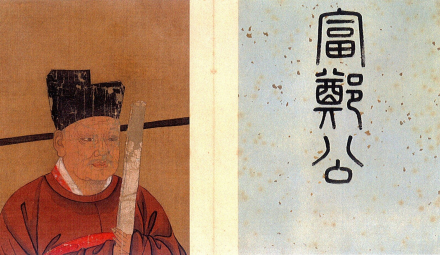 富鄭公